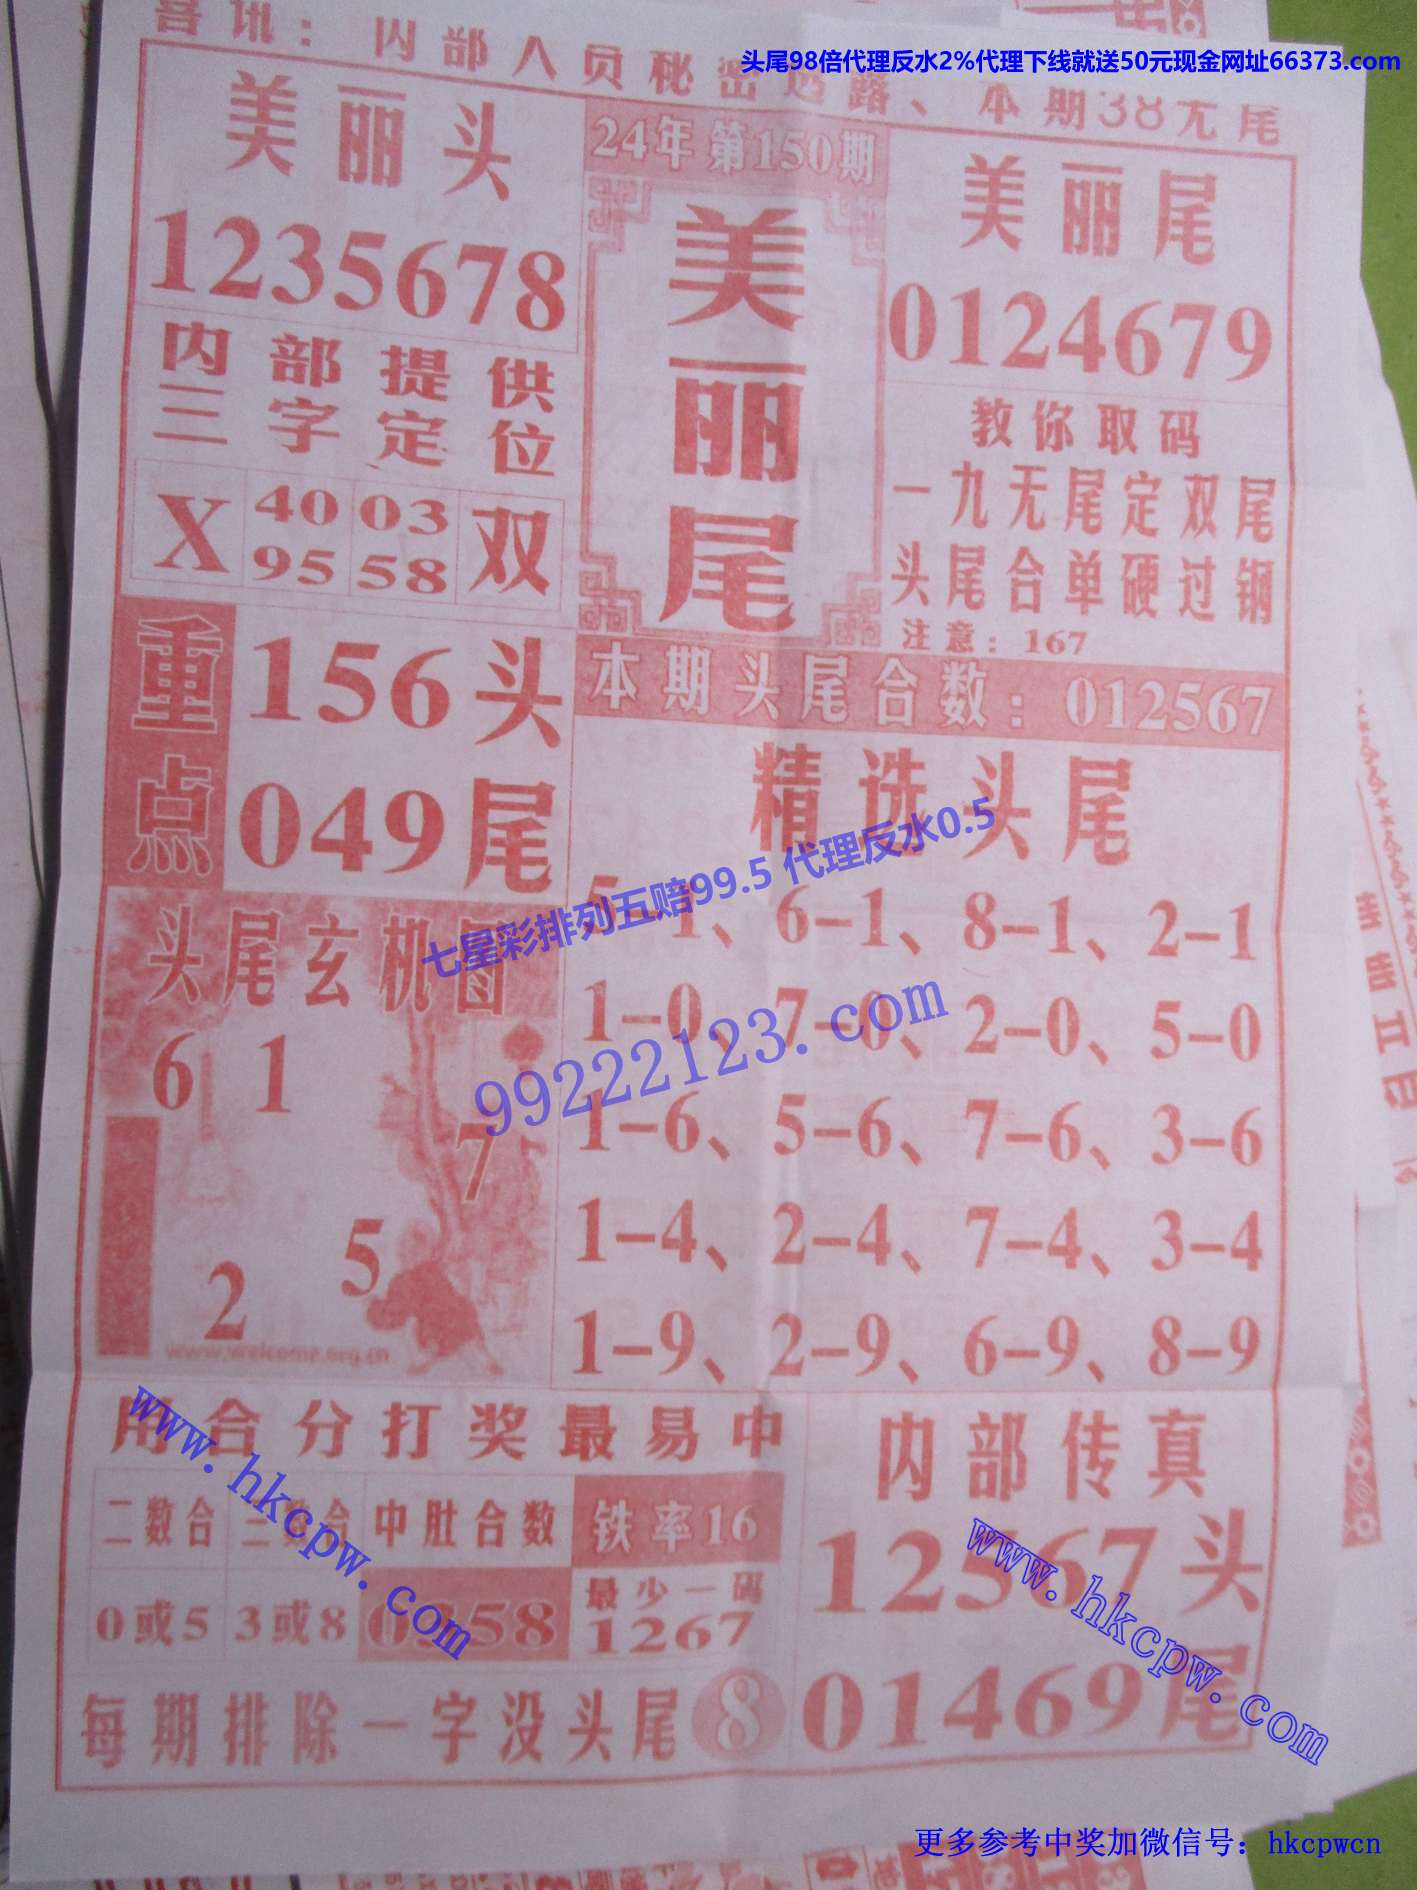 喜讯：内部人员秘密透露、本期38无尾
头尾98倍代理反水2%代理下线就送50元现金网址66373.com
美丽头
1235678
24年 第150期
美丽尾
美丽尾
0124679
内部提供
三字定位
X 40 03 双
95 58
教你取码
一九无尾定双尾
头尾合单硬过钢
注意：167
重点
156头
049尾
本期头尾合数：012567
精选头尾
5-1、6-1、8-1、2-1
1-0、7-0、2-0、5-0
1-6、5-6、7-6、3-6
1-4、2-4、7-4、3-4
1-9、2-9、6-9、8-9
七星彩排列五赔99.5 代理反水0.5
99222123.com
头尾玄机图
6 1
7
5
2
www.welcome.org.cn
用合分打奖最易中
二数合 三数合 中肚合数 铁率16
0或5 3或8 0358 最少一码
1267
每期排除一字没头尾 8
内部传真
12567头
01469尾
www.hkcpw.com
www.hkcpw.com
更多参考中奖加微信号：hkcpwcn